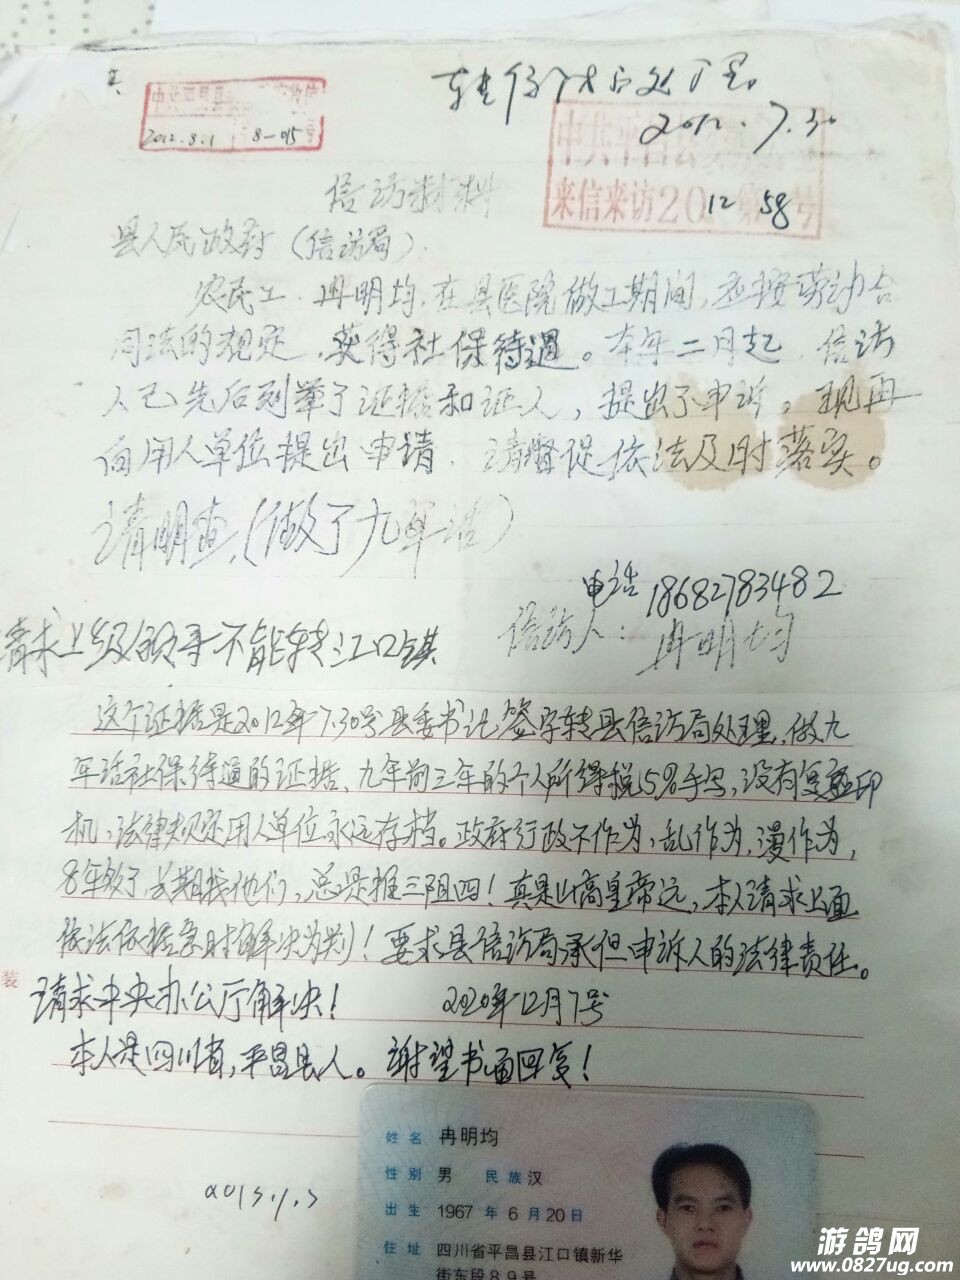 转信访局处理。
2012.7.30
中共平昌县
2012.8.1 8-015号
来信来访2012第58号
信访材料
县人民政府(信访局)。
农民工、冉明均,在县医院做工期间,应按劳动合
同法的规定,获得社保待遇。本年二月起,信访
人已先后列举了证据和证人,提出了申诉。现再
向用人单位提出申请,请督促依法及时落实。
请明查,(做了九年法)
电话 18682783482
信访人:冉明均
请求上级领导不能转江口镇
这个证据是2012年7.30号县委书记签字转县信访局处理,做九
年活社保待遇的证据,九年前三年的个人所得税5%手写,没有复印
机,法律规定用人单位永远存档。政府行政不作为,乱作为,漫作为,
8年多了长期找他们,总是推三阻四!真是山高皇帝远,本人请求上面
依法依据急时解决为盼!要求县信访局承但申诉人的法律责任。
装
请求中央办公厅解决! 2020年12月7号
本人是四川省,平昌县人。谢望书面回复!
2013.1.3
姓名 冉明均
性别 男 民族 汉
出生 1967 年 6 月 20 日
住址 四川省平昌县江口镇新华
街东段89号
游鸽网
www.0827ug.com